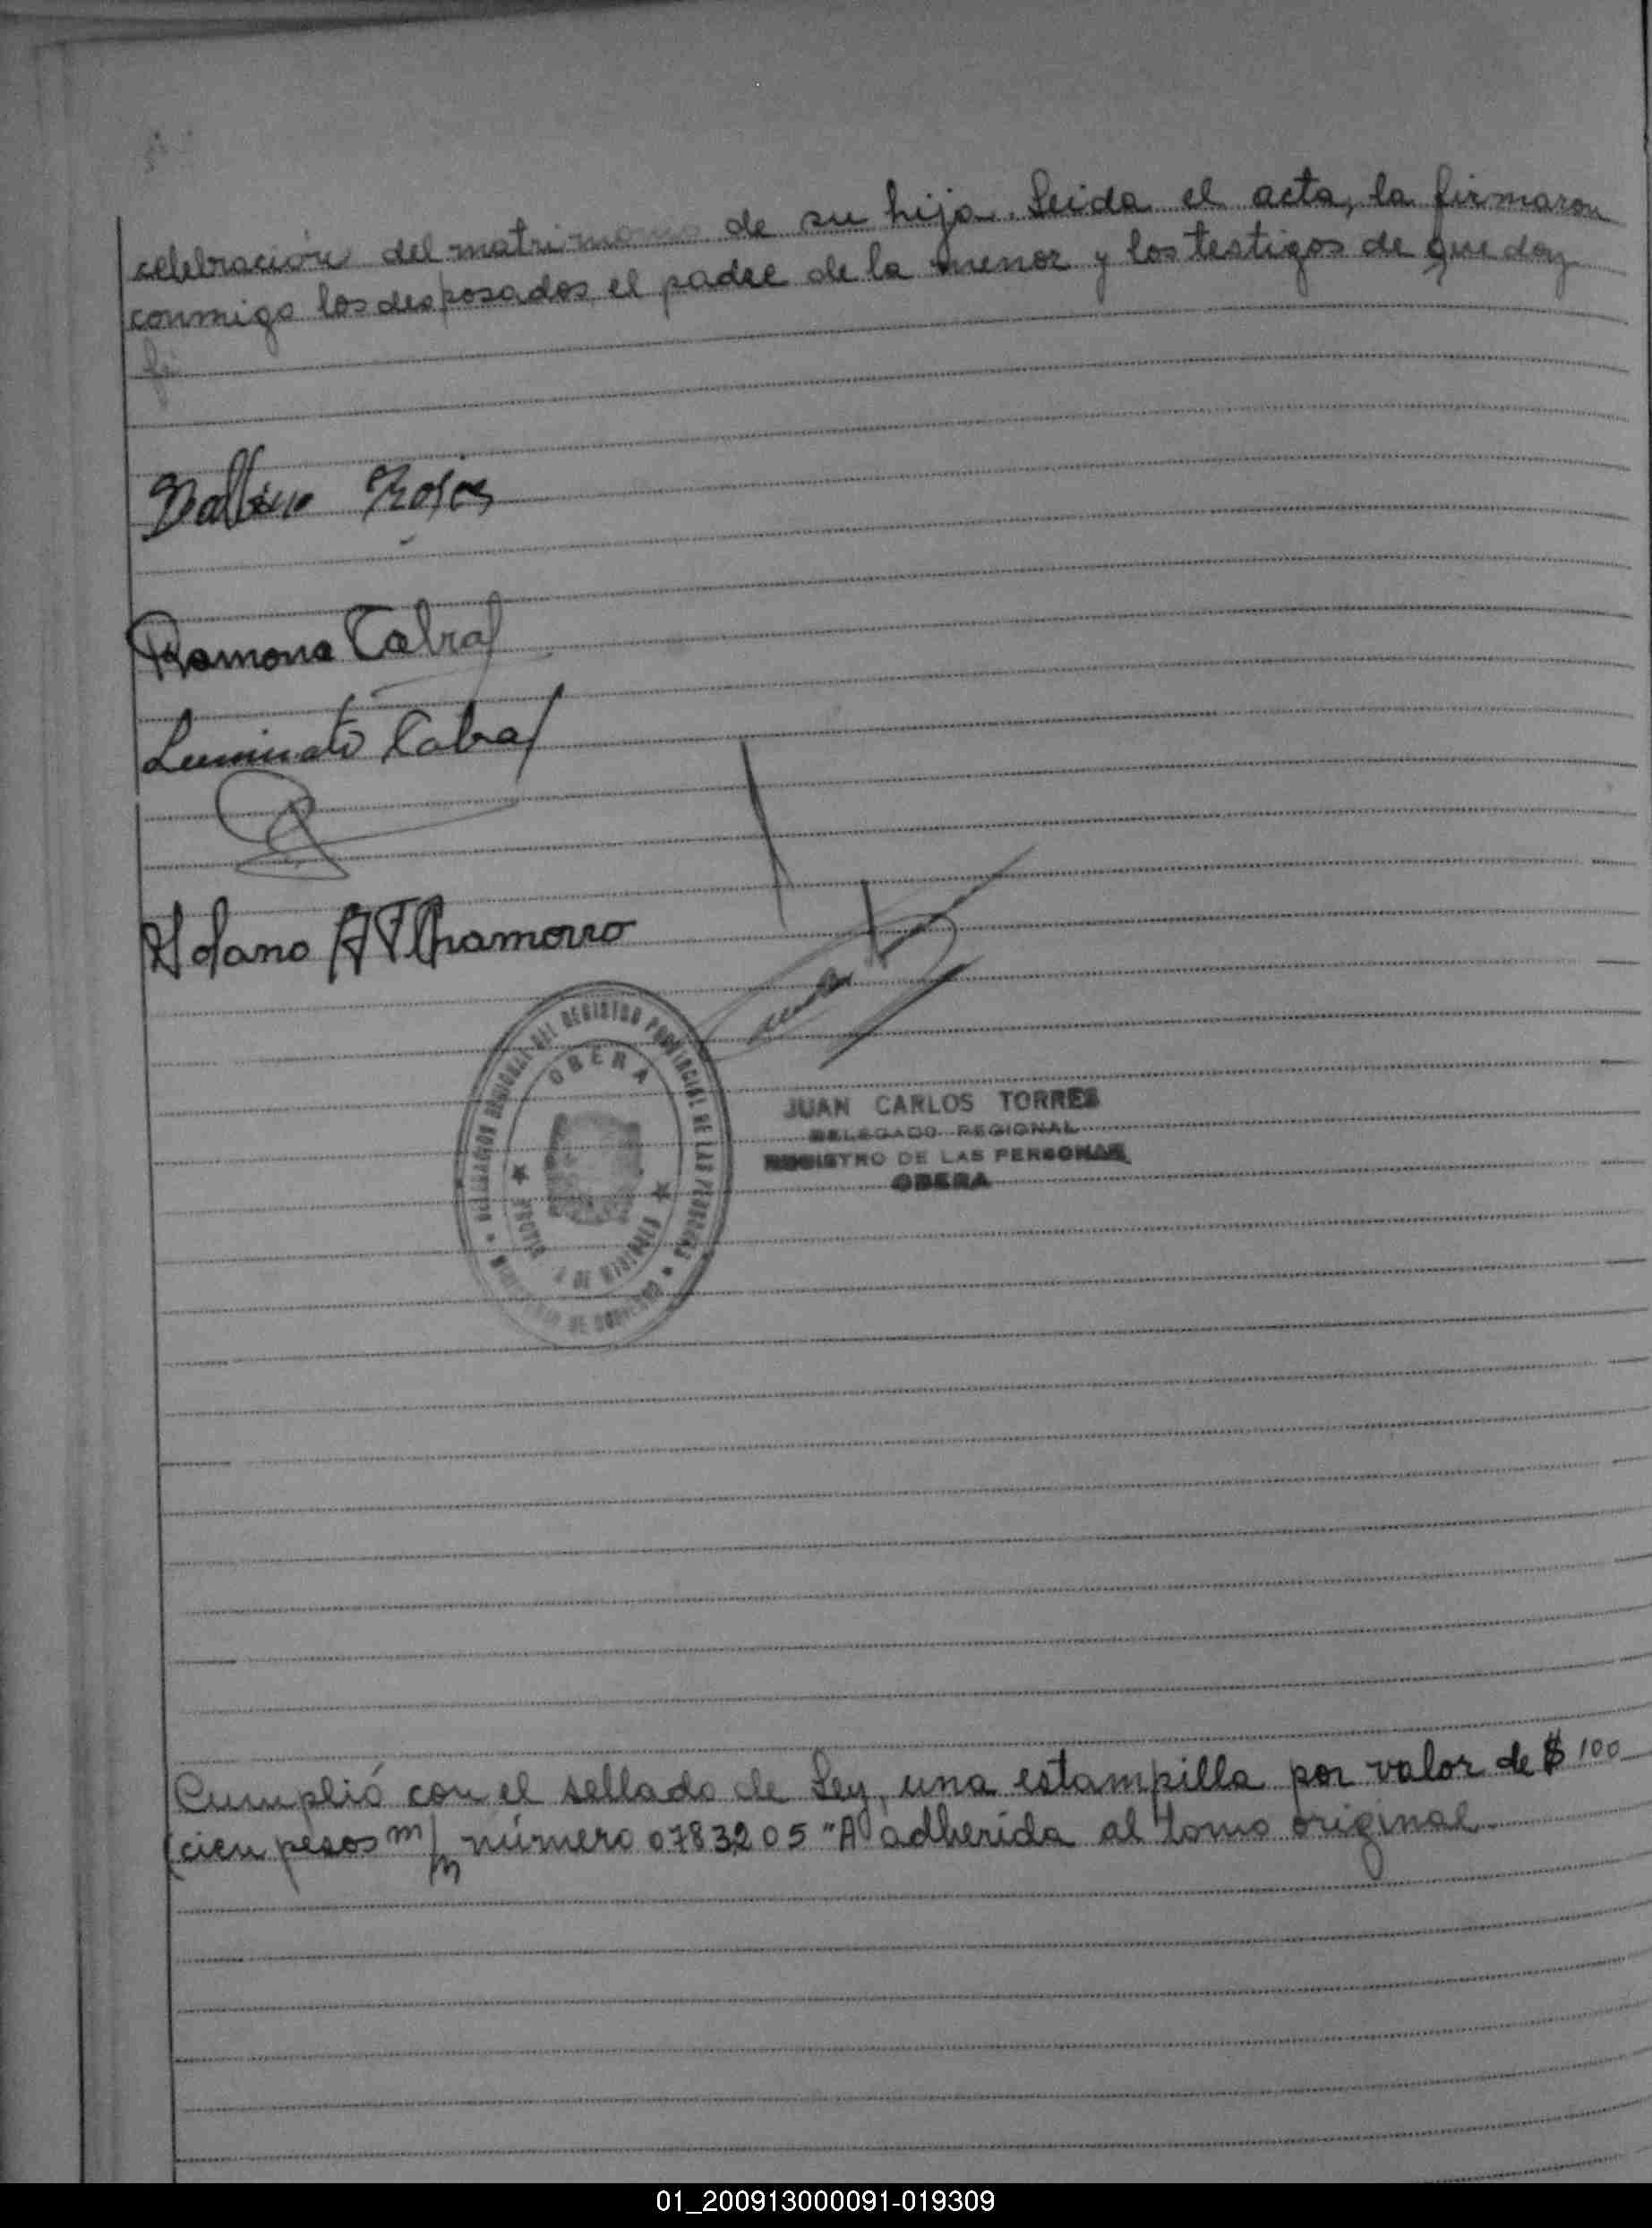 celebración del matrimonio de su hija. Leida el acta, la firmaron
conmigo los desposados, el padre de la menor y los testigos de que doy
fé
Balbino Rojas
Ramona Cabral
Luminato Cabral
Solano A Chamorro
DELEGACION REGIONAL DEL REGISTRO PROVINCIAL DE LAS PERSONAS
MINISTERIO DE GOBIERNO
OBERA
PROVINCIA DE MISIONES
JUAN CARLOS TORRES
DELEGADO REGIONAL
REGISTRO DE LAS PERSONAS
OBERA
Cumplió con el sellado de Ley, una estampilla por valor de $ 100
(cien pesos m/n número 0783205 "A" adherida al tomo original
01_200913000091-019309